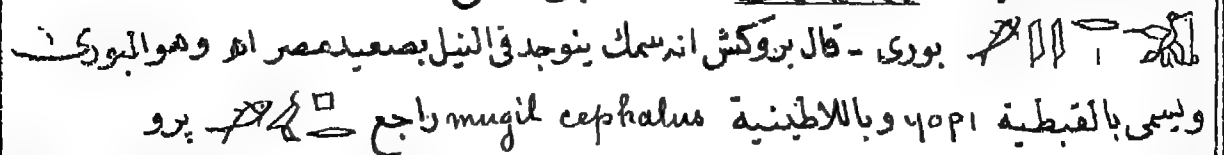 بورى - قال بروكش انه سمك يتوجد فى النيل بصعيد مصر اهـ وهو البورى
ويسمى بالقبطية ϥⲟⲣⲓ وباللاطينية mugil cephalus راجع برو